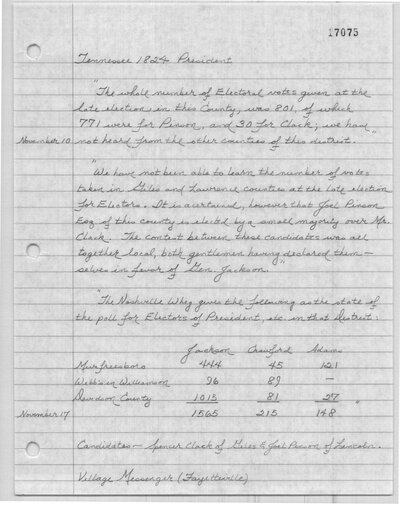 17075
Tennessee 1824 President
"The whole number of Electoral votes given at the
late election, in this County, was 801, of which
771 were for Pinson, and 30 for Clack; we have
November 10 not heard from the other counties of this district."
"We have not been able to learn the number of votes
taken in Giles and Lawrence counties at the late election
for Electors. It is ascertained, however that Joel Pinson
Esq. of this county is elected by a small majority over Mr.
Clack. The contest between these candidates was all
together local, both gentlemen having declared them-
selves in favor of Gen. Jackson."
"The Nashville Whig gives the following as the state of
the poll for Electors of President, etc. in that District:
Jackson Crawford Adams
Murfreesboro 444 45 121
Webb's in Williamson 96 89 —
Davidson County 1015 81 27 "
November 17 1565 215 148
Candidates - Spencer Clack of Giles & Joel Pinson of Lincoln.
Village Messenger (Fayetteville)